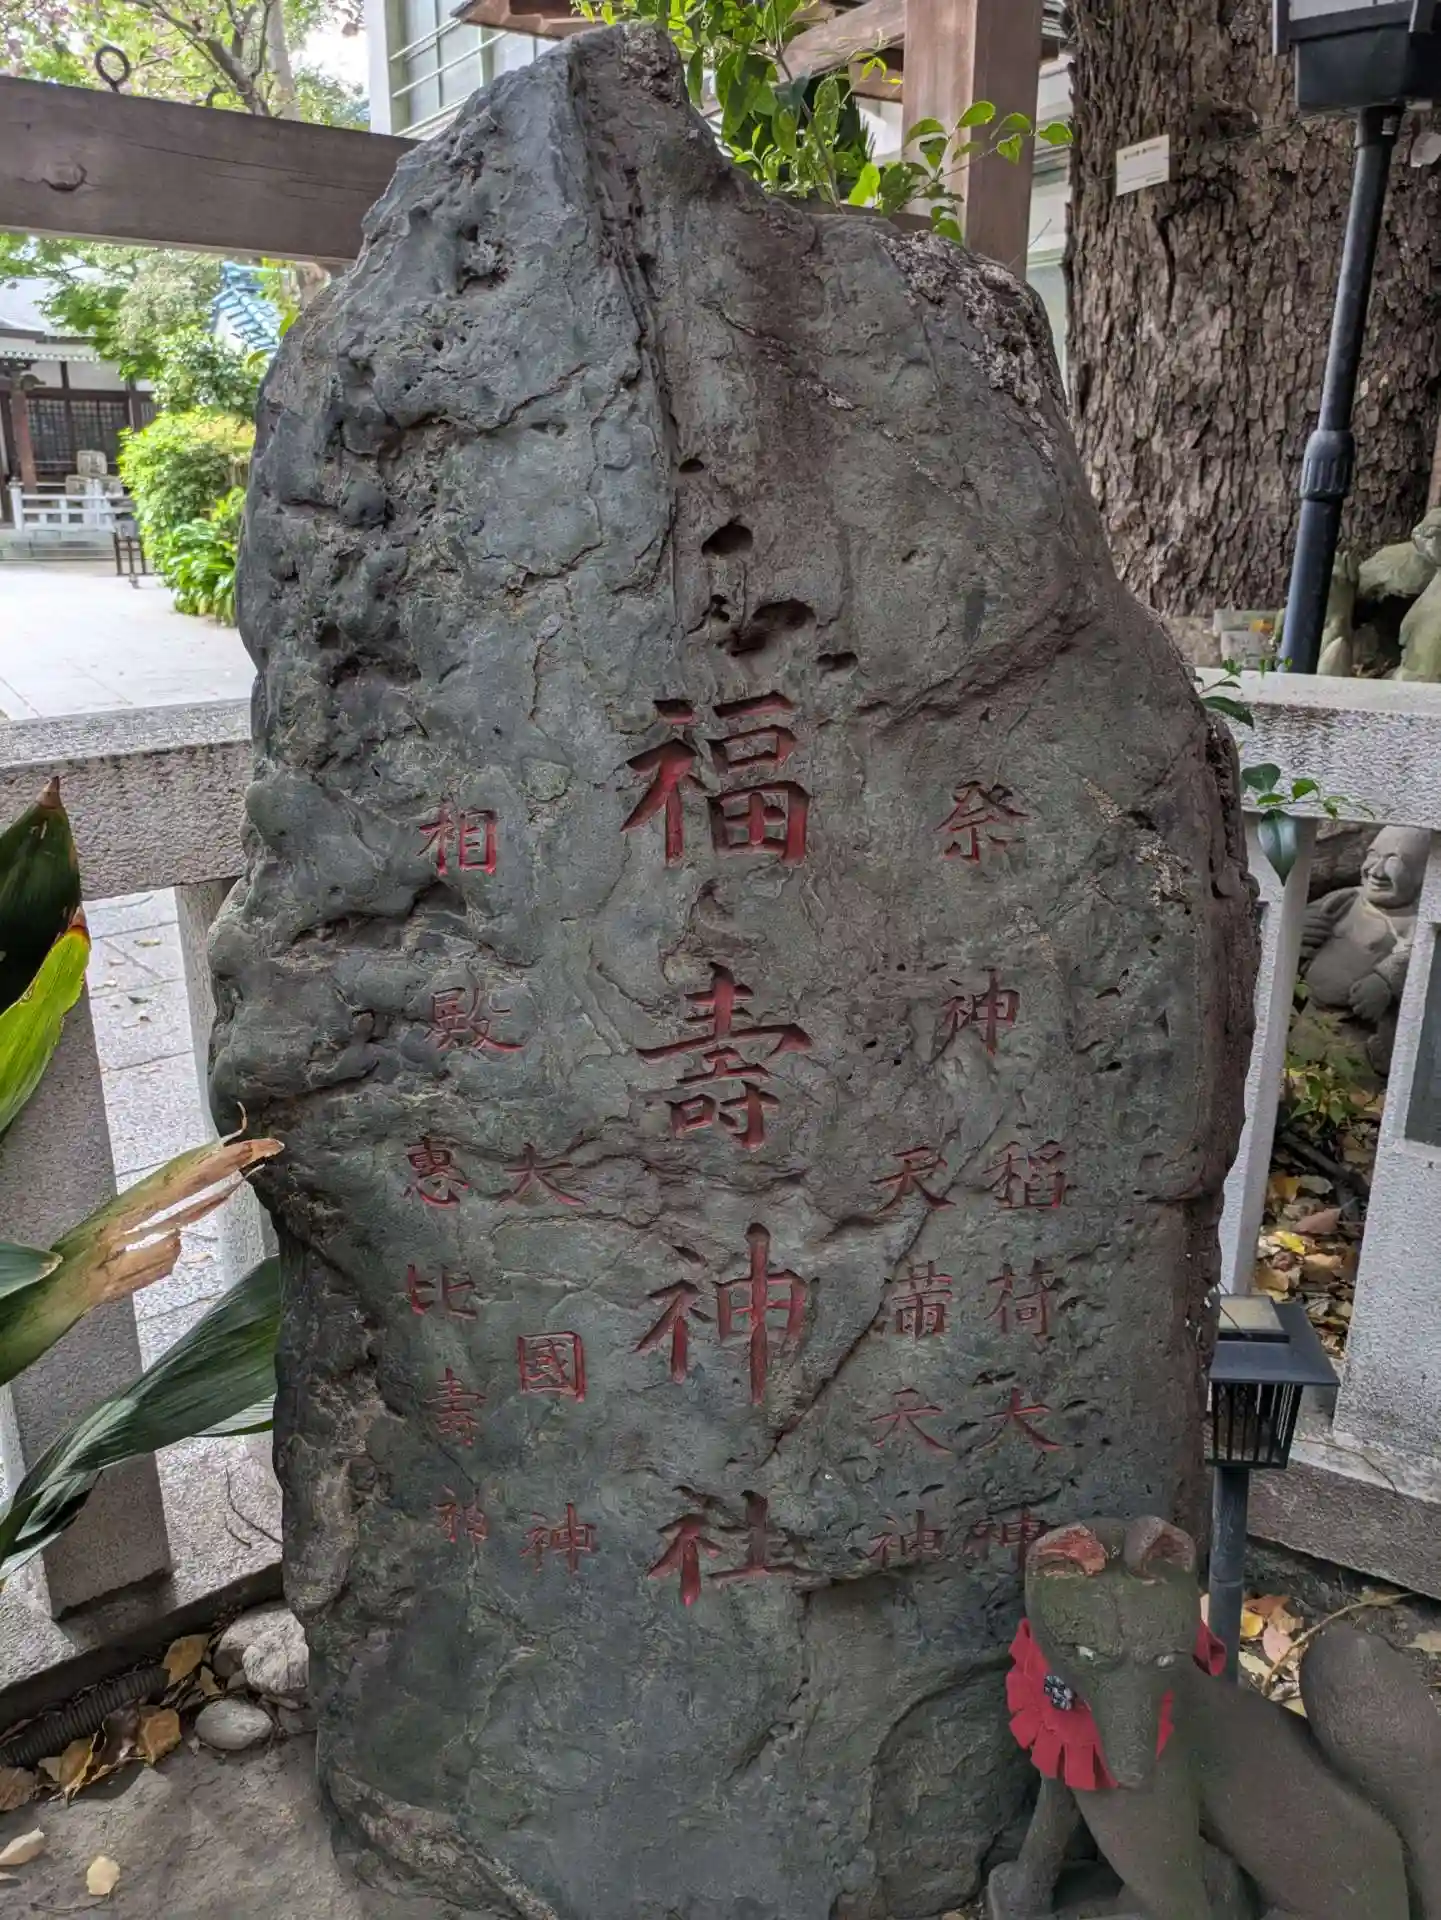 祭神
稲荷大神
天滿天神
福壽神社
相殿
大國神
惠比壽神